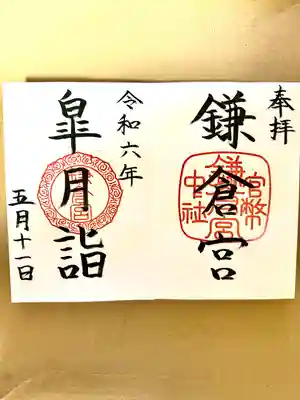 奉拝
鎌倉宮
官幣中社
鎌倉宮
令和六年
皐月詣
五月十一日